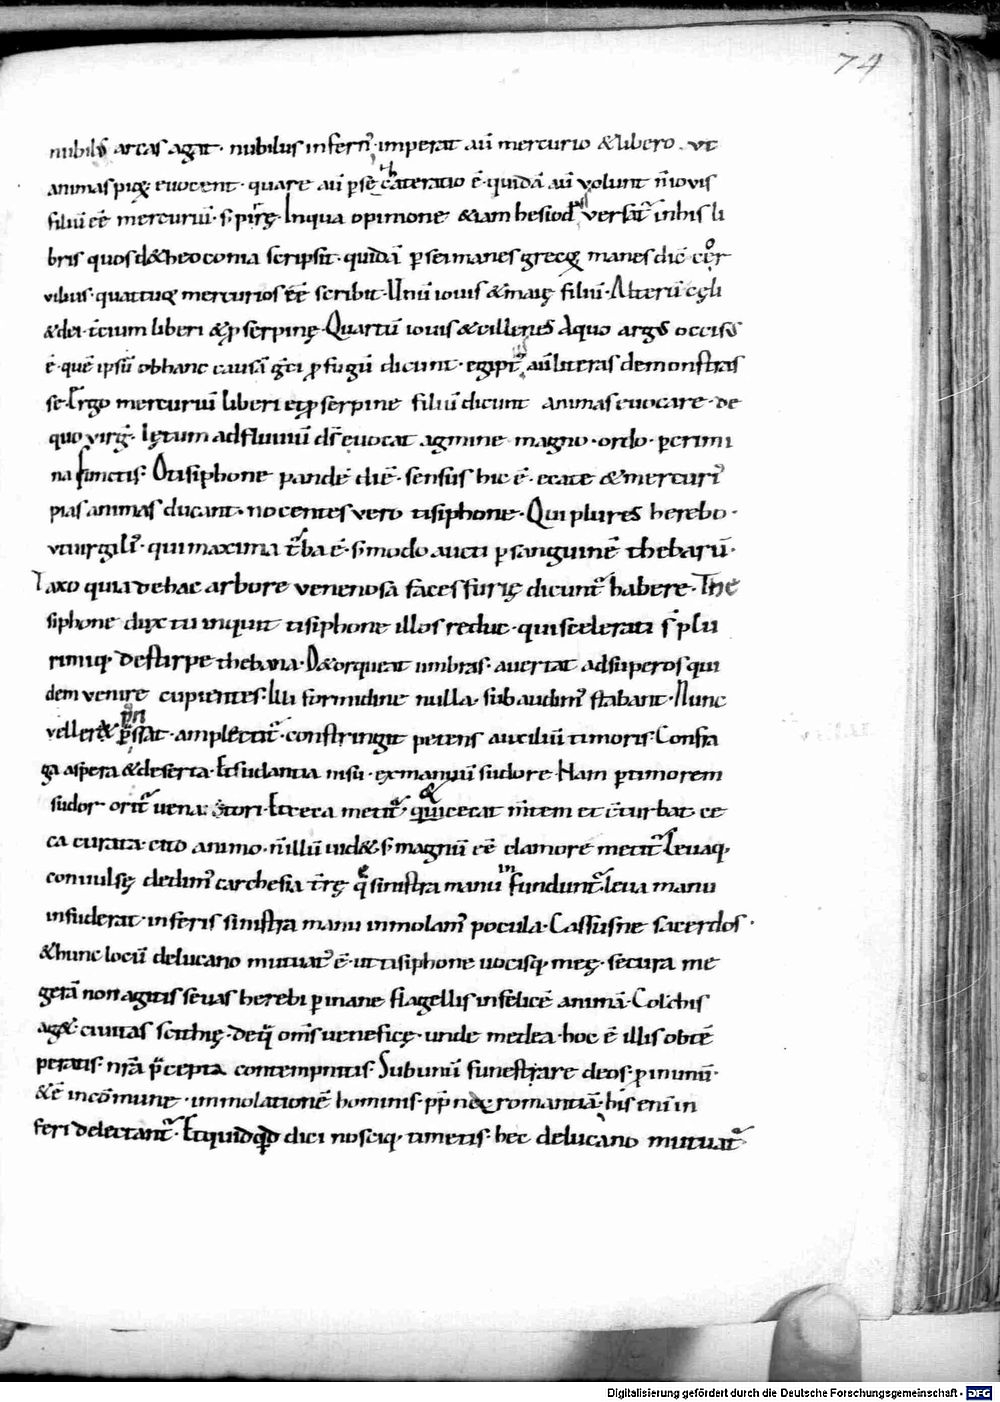 74
nubilus arcas agit · nubilus inferni᷒ · imperat aū mercurio &libero · vt
animas pięꝫ euocent · quare aū psę cateratio ē · quidā aū volunt n̄ iouis
filiū eē mercuriū · s; Inqua opimone &iam hesiod' versat᷒ inhis li
bris quos d& heoconia scripsit · quidā persei manes grecę manes dic̄
vibius · quattuor mercurios eē scribit · Unū iouis &maię filiū · Alterū cęli
&dei · t̄cium liberi &ꝓserpinę · Quartū iouis &cillenes Aquo argꝰ occisꝰ
ē · quē ipsū obhanc causā gͥci ꝓfugū dicunt · egipt᷒ aū literas demonstras
se · Ergo mercuriū liberi et ꝓserpine filiū dicunt animas euocare · de
quo virg̅ · lętum ad fluuiū dͥ̅s euocat agmine magno · ordo · ꝑ crimi
na functis · O tisiphone pande dic̄ · sensus hic ē · ecate &mercuri᷒
pias animas ducant · nocentes vero tisiphone · Qui plures herebo ·
vtuirgili᷒ · qui maxima t᷒ba ē · s; modo aucti ꝑ sanguinē thebarū ·
Taxo quia dehac arbore venenosā faces furię dicunt᷒ habere · The
siphone dux tu inquit tisiphone illos reduc · qui scelerati s̄ plu
rimiq; destirpe thebana · D&orqueat umbras · auertat adsuperos qui
dem venire cupientes · Illi formidine nulla · subaudim᷒ stabant · Nunc
veller& p̄ssat · amplectit᷒ · constringit petens auxiliū timoris · Confra
ga aspera &deserta · Et sudantia nisu · exmanuū sudore · Nam ꝑ timorem
sudor orit᷒ vena · Et ceca metit᷒ · cecat m̄tem et c̄turbat · ce
ca curata · cito animo · n̄ illū uid& · s; magnū eē clamorē metit᷒ · Leuaq;
conuulsę dedim᷒ carchesia t̄rę q̄ sinistra manu in fundunt᷒ · leua manu
insuderat · inferis sinistra manu inmolam᷒ pocula · Cassusne sacerdos ·
&hunc locū delucano mutuat᷒ ē · ut tisiphone uocisq; meę · secura me
gerā non agitis seuas herebi ꝑ inane flagellis infelicē animā · Colchis
ag& · ciuitas scithię · deq̄ om̄s ueneficę · unde medea · hoc ē illis obtē
peratis · n̄rā p̄cepta contempnitis · Subunū funestrare deos · ꝓ inimū ·
&ē incōmune · immolationē hominis · romantiā · his eni in
feri delectant᷒ · Et quid qd dici nosciq; timetis · hec delucano mutuat᷒
Digitalisierung gefördert durch die Deutsche Forschungsgemeinschaft · DFG